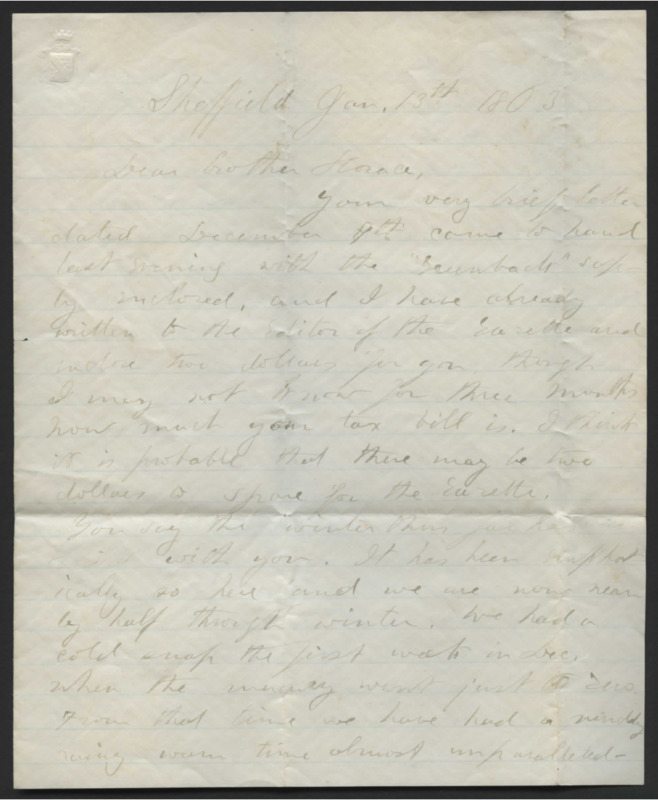 Sheffield Jan. 13th 1863
Dear brother Horace,
Your very brief letter
dated December 9th came to hand
last evening with the "Greenbacks" saf-
ly inclosed, and I have already
written to the Editor of the Gazette and
inclose two dollars for you, though
I may not know for three months
how much your tax bill is. I think
it is probable that there may be two
dollars to spare for the Gazette.
You say the winter thus far has
with you. It has been emphat
ically so here and we are now near
ly half through winter. We had a
cold snap the first week in Dec.
when the mercury went just to zero.
From that time we have had a
warm time almost unparalleled-